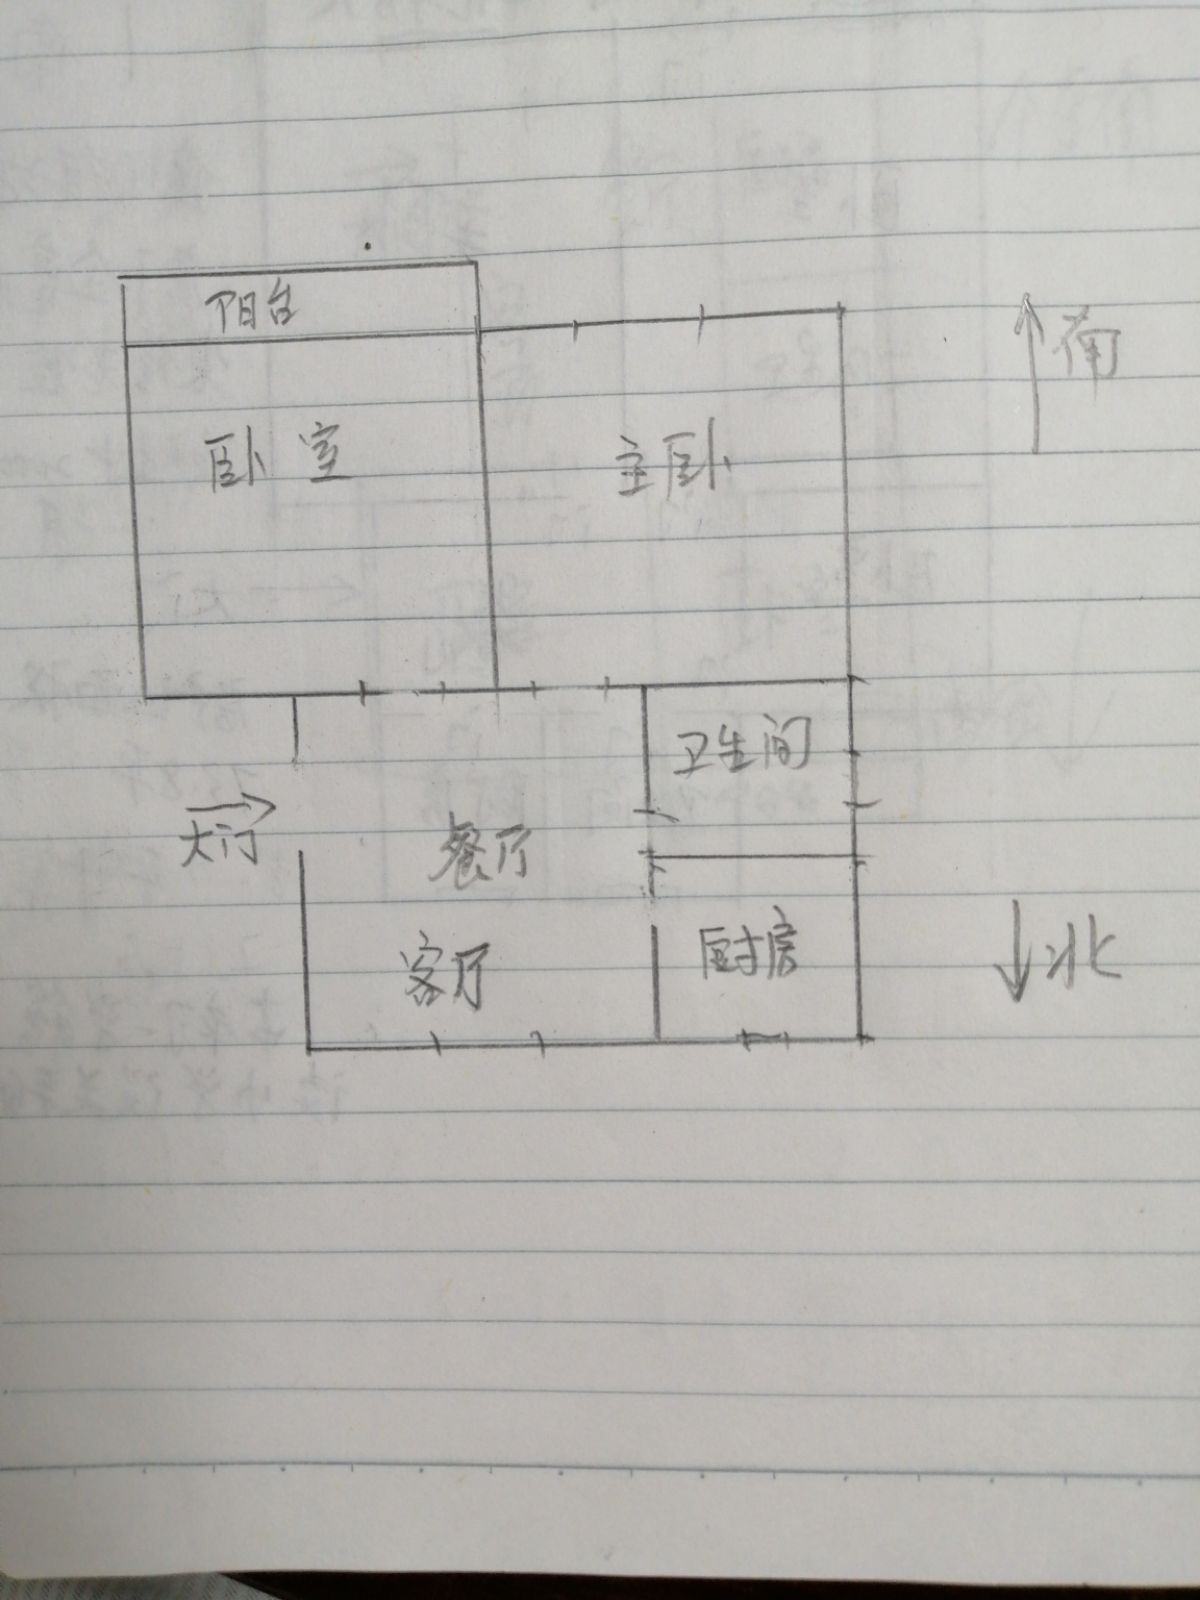 阳台
南
卧室
主卧
卫生间
大门
餐厅
客厅
厨房
北